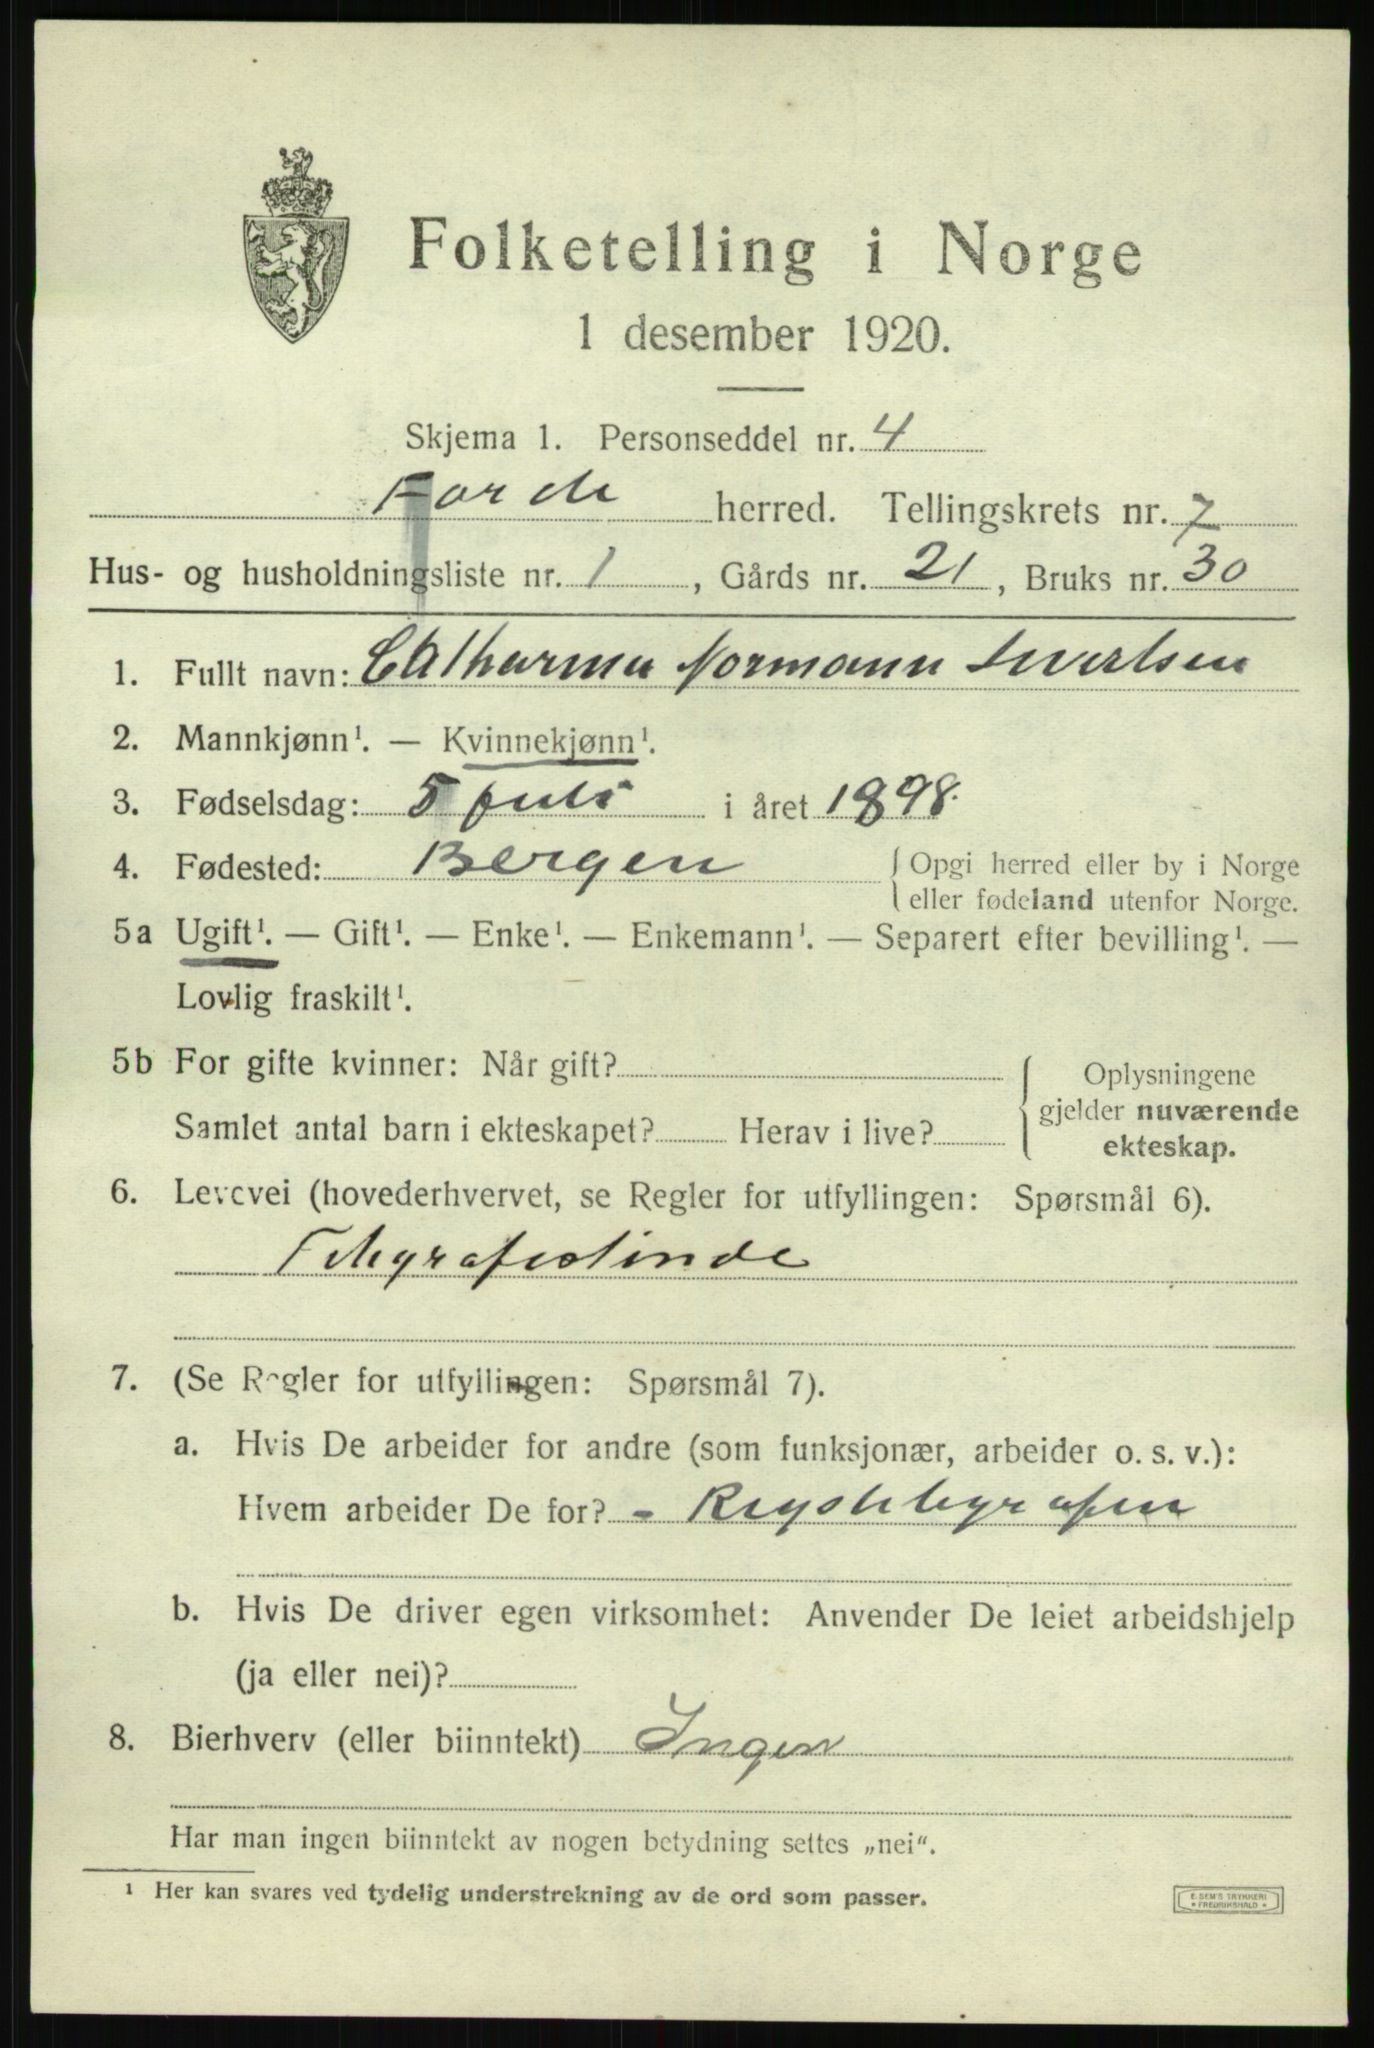 Folketelling i Norge
1 desember 1920.
Skjema 1. Personseddel nr. 4
Førde herred. Tellingskrets nr. 7
Hus- og husholdningsliste nr. 1, Gårds nr. 21, Bruks nr. 30
1. Fullt navn: Catharina Normann Sivertsen
2. Mannkjønn¹. — Kvinnekjønn¹.
3. Fødselsdag: 5 juli i året 1898.
4. Fødested: Bergen { Opgi herred eller by i Norge
eller fødeland utenfor Norge.
5a Ugift¹. — Gift¹. — Enke¹. — Enkemann¹. — Separert efter bevilling¹. —
Lovlig fraskilt¹.
5b For gifte kvinner: Når gift?
Samlet antal barn i ekteskapet? Herav i live?
Oplysningene
gjelder nuværende
ekteskap.
6. Levevei (hovederhvervet, se Regler for utfyllingen: Spørsmål 6).
Telegrafistinde
7. (Se Regler for utfyllingen: Spørsmål 7).
a. Hvis De arbeider for andre (som funksjonær, arbeider o. s. v.):
Hvem arbeider De for? - Rigstelegrafen
b. Hvis De driver egen virksomhet: Anvender De leiet arbeidshjelp
(ja eller nei)?
8. Bierhverv (eller biinntekt) Ingen
Har man ingen biinntekt av nogen betydning settes „nei“.
¹ Her kan svares ved tydelig understrekning av de ord som passer.
E. SEM'S TRYKKERI
* FREDRIKSHALD *